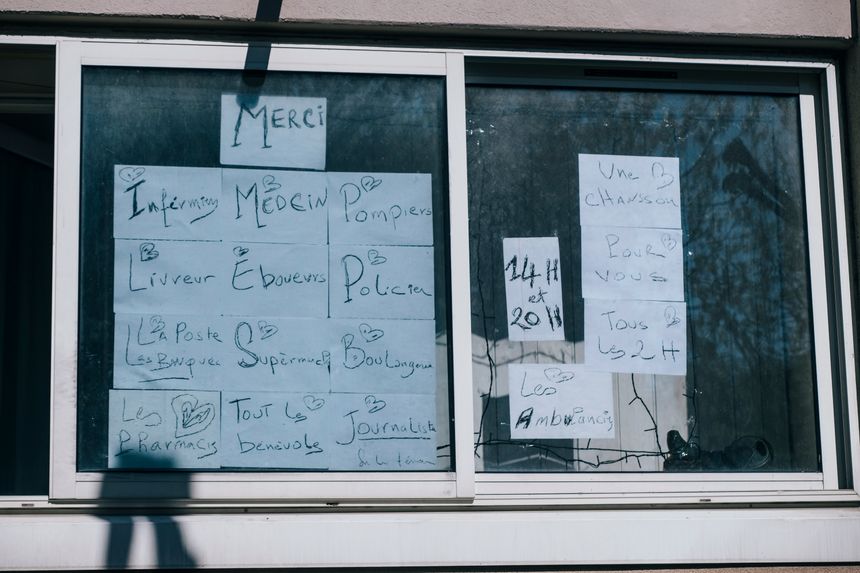 Merci
Infirmiers
MEDEIN
Pompiers
Livreur
Éboueurs
Policier
LA Poste
Les Banques
Supermarché
Boulangerie
Les
Pharmacis
Tout les
bénévole
Journaliste
Sur le terrain
14 H
et
20 H
Une
CHANSSON
Pour
vous
Tous
les 2 H
Les
Ambulancis